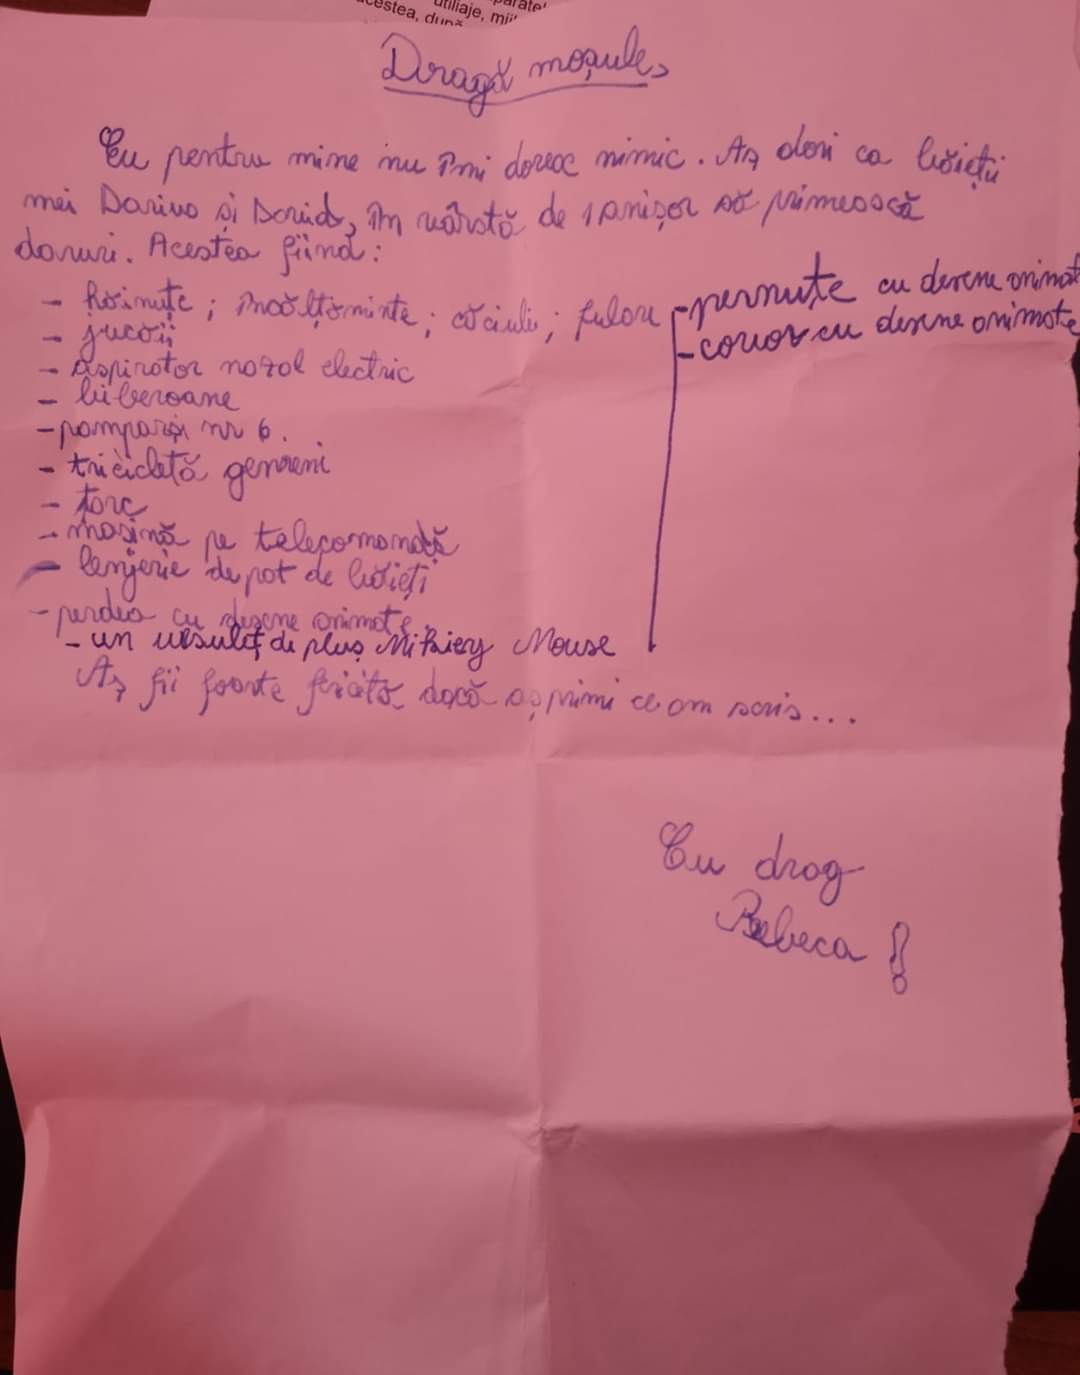 utiliaje, mij
acestea, după
Dragă moșule,
Eu pentru mine nu îmi doresc nimic. Aș dori ca băieții
mei Darius și David, în vârstă de 1 anișor să primească
daruri. Acestea fiind:
- hăinuțe; încălțăminte; căciuli; fulare
- pernuțe cu desene animat
- covor cu desene animate
- jucării
- aspirator nazal electric
- biberoane
- pamparși nr 6.
- tricicletă gemeni
- țarc
- mașină pe telecomandă
- lenjerie de pat de băieți
- perdea cu desene animate
- un ursuleț de pluș Mikiey Mouse
Aș fii foarte fericită dacă aș primi ce am scris...
Cu drag
Rebeca!